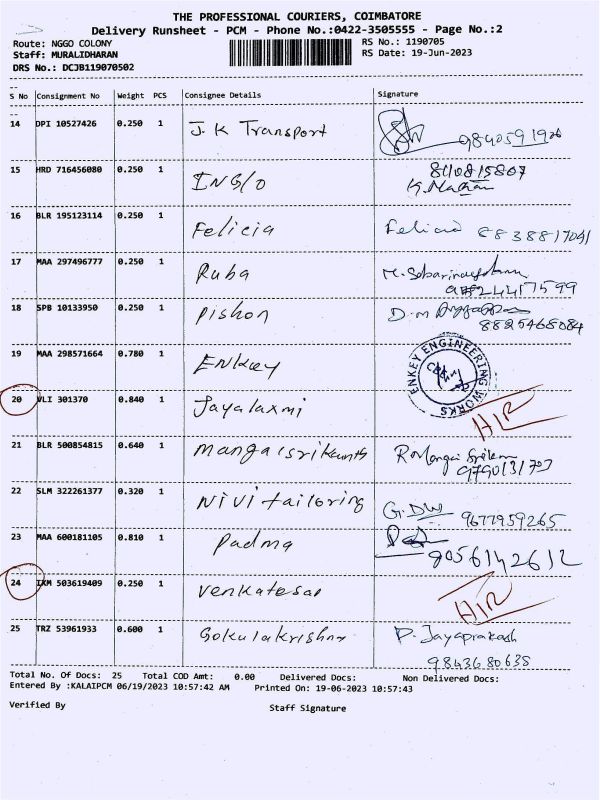 THE PROFESSIONAL COURIERS, COIMBATORE
Delivery Runsheet - PCM - Phone No.:0422-3505555 - Page No.:2
Route: NGGO COLONY RS No.: 1190705
Staff: MURALIDHARAN RS Date: 19-Jun-2023
DRS No.: DCJB119070502
S No Consignment No Weight PCS Consignee Details Signature
14 DPI 10527426 0.250 1 J.K Transport
15 HRD 716456080 0.250 1 8110815807
16 BLR 195123114 0.250 1 Felicia Felicia 8838817041
17 MAA 297496777 0.250 1 Ruba
18 SPB 10133950 0.250 1 Pishon 8825468084
19 MAA 298571664 0.780 1 Enkey ENKEY ENGINEERING WORKS
20 VLI 301370 0.840 1 Jayalaxmi HIR
21 BLR 500854815 0.640 1 mangaisrikanth
22 SLM 322261377 0.320 1 Nivi tailoring 9677959265
23 MAA 600181105 0.810 1 Padma 8056142612
24 IXM 503619409 0.250 1 HIR
25 TRZ 53961933 0.600 1 P. Jayaprakash
9843680638
Total No. Of Docs: 25 Total COD Amt: 0.00 Delivered Docs: Non Delivered Docs:
Entered By :KALAIPCM 06/19/2023 10:57:42 AM Printed On: 19-06-2023 10:57:43
Verified By Staff Signature